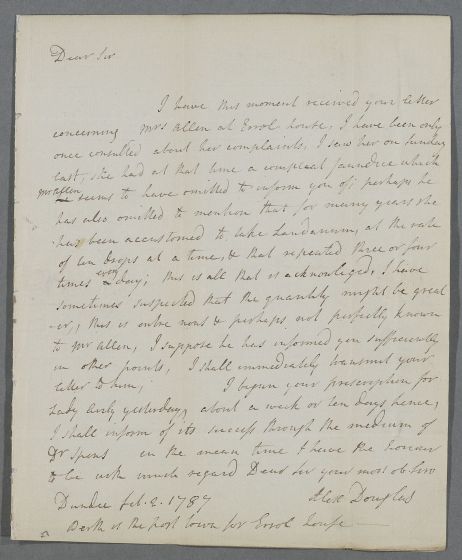 Dear Sir
I have this moment received your letter
concerning Mrs Allen at Errol house, I have been only
once consulted about her complaints, I saw her on Sunday
last, she had at that time a compleat jaundice which
Mr Allen
seems to have omitted to inform you of; perhaps he
has also omitted to mention that for many years she
has been accustomed to take Laudanum, at the rate
of ten drops at a time, & that repeated three or four
times every day; this is all that is acknowledged, I have
sometimes suspected that the quantity might be great
-er, this is entre nous & perhaps not perfectly known
to Mr Allen, I suppose he has informed you sufficiently
in other points, I shall immediately transmit your
letter to him; I begun your prescription for
Lady Airly yesterday, about a week or ten days hence,
I shall inform of its success through the medium of
Dr Spens in the mean time I have the honour
to be with much regard Dear Sir your most ob Serv
Dundee feb. 2. 1787 Alexr Douglas
Perth is the post town for Errol house